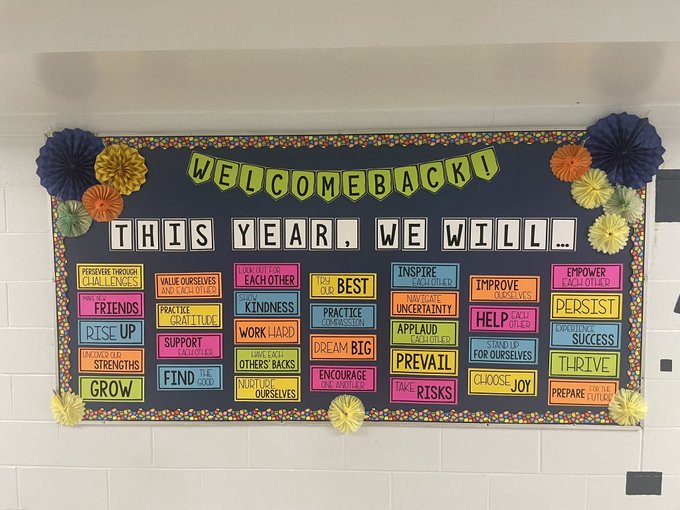 WELCOME BACK!
THIS YEAR, WE WILL...
PERSEVERE THROUGH
CHALLENGES
MAKE NEW
FRIENDS
RISE UP
UNCOVER OUR
STRENGTHS
GROW
VALUE OURSELVES
AND EACH OTHER
PRACTICE
GRATITUDE
SUPPORT
EACH OTHER
FIND THE
GOOD
LOOK OUT FOR
EACH OTHER
SHOW
KINDNESS
WORK HARD
HAVE EACH
OTHERS' BACKS
NURTURE
OURSELVES
TRY
OUR BEST
PRACTICE
COMPASSION
DREAM BIG
ENCOURAGE
ONE ANOTHER
INSPIRE
EACH OTHER
NAVIGATE
UNCERTAINTY
APPLAUD
EACH OTHER
PREVAIL
TAKE RISKS
IMPROVE
OURSELVES
HELP EACH
OTHER
STAND UP
FOR OURSELVES
CHOOSE JOY
EMPOWER
EACH OTHER
PERSIST
EXPERIENCE
SUCCESS
THRIVE
PREPARE FOR THE
FUTURE